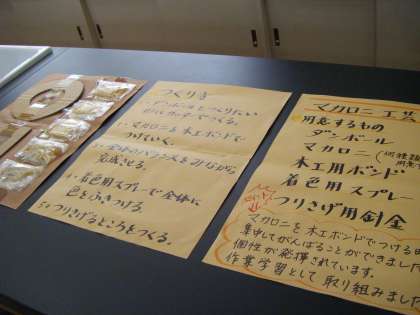 つくり方
1. ダンボールをつくりたい
形にカッターでつくる。
2. マカロニを木工ボンドで
つけていく。
3. 全体のバランスをみながら
完成させる。
4. 着色用スプレーで全体に
色をふきつける。
5. つりさげるところをつくる。
マカロニ工芸
用意するもの
ダンボール
マカロニ
木工用ボンド
着色用スプレー
つりさげ用針金
マカロニを木工ボンドでつける時
集中してがんばることができました
個性が発揮されています。
作業学習として取り組みました